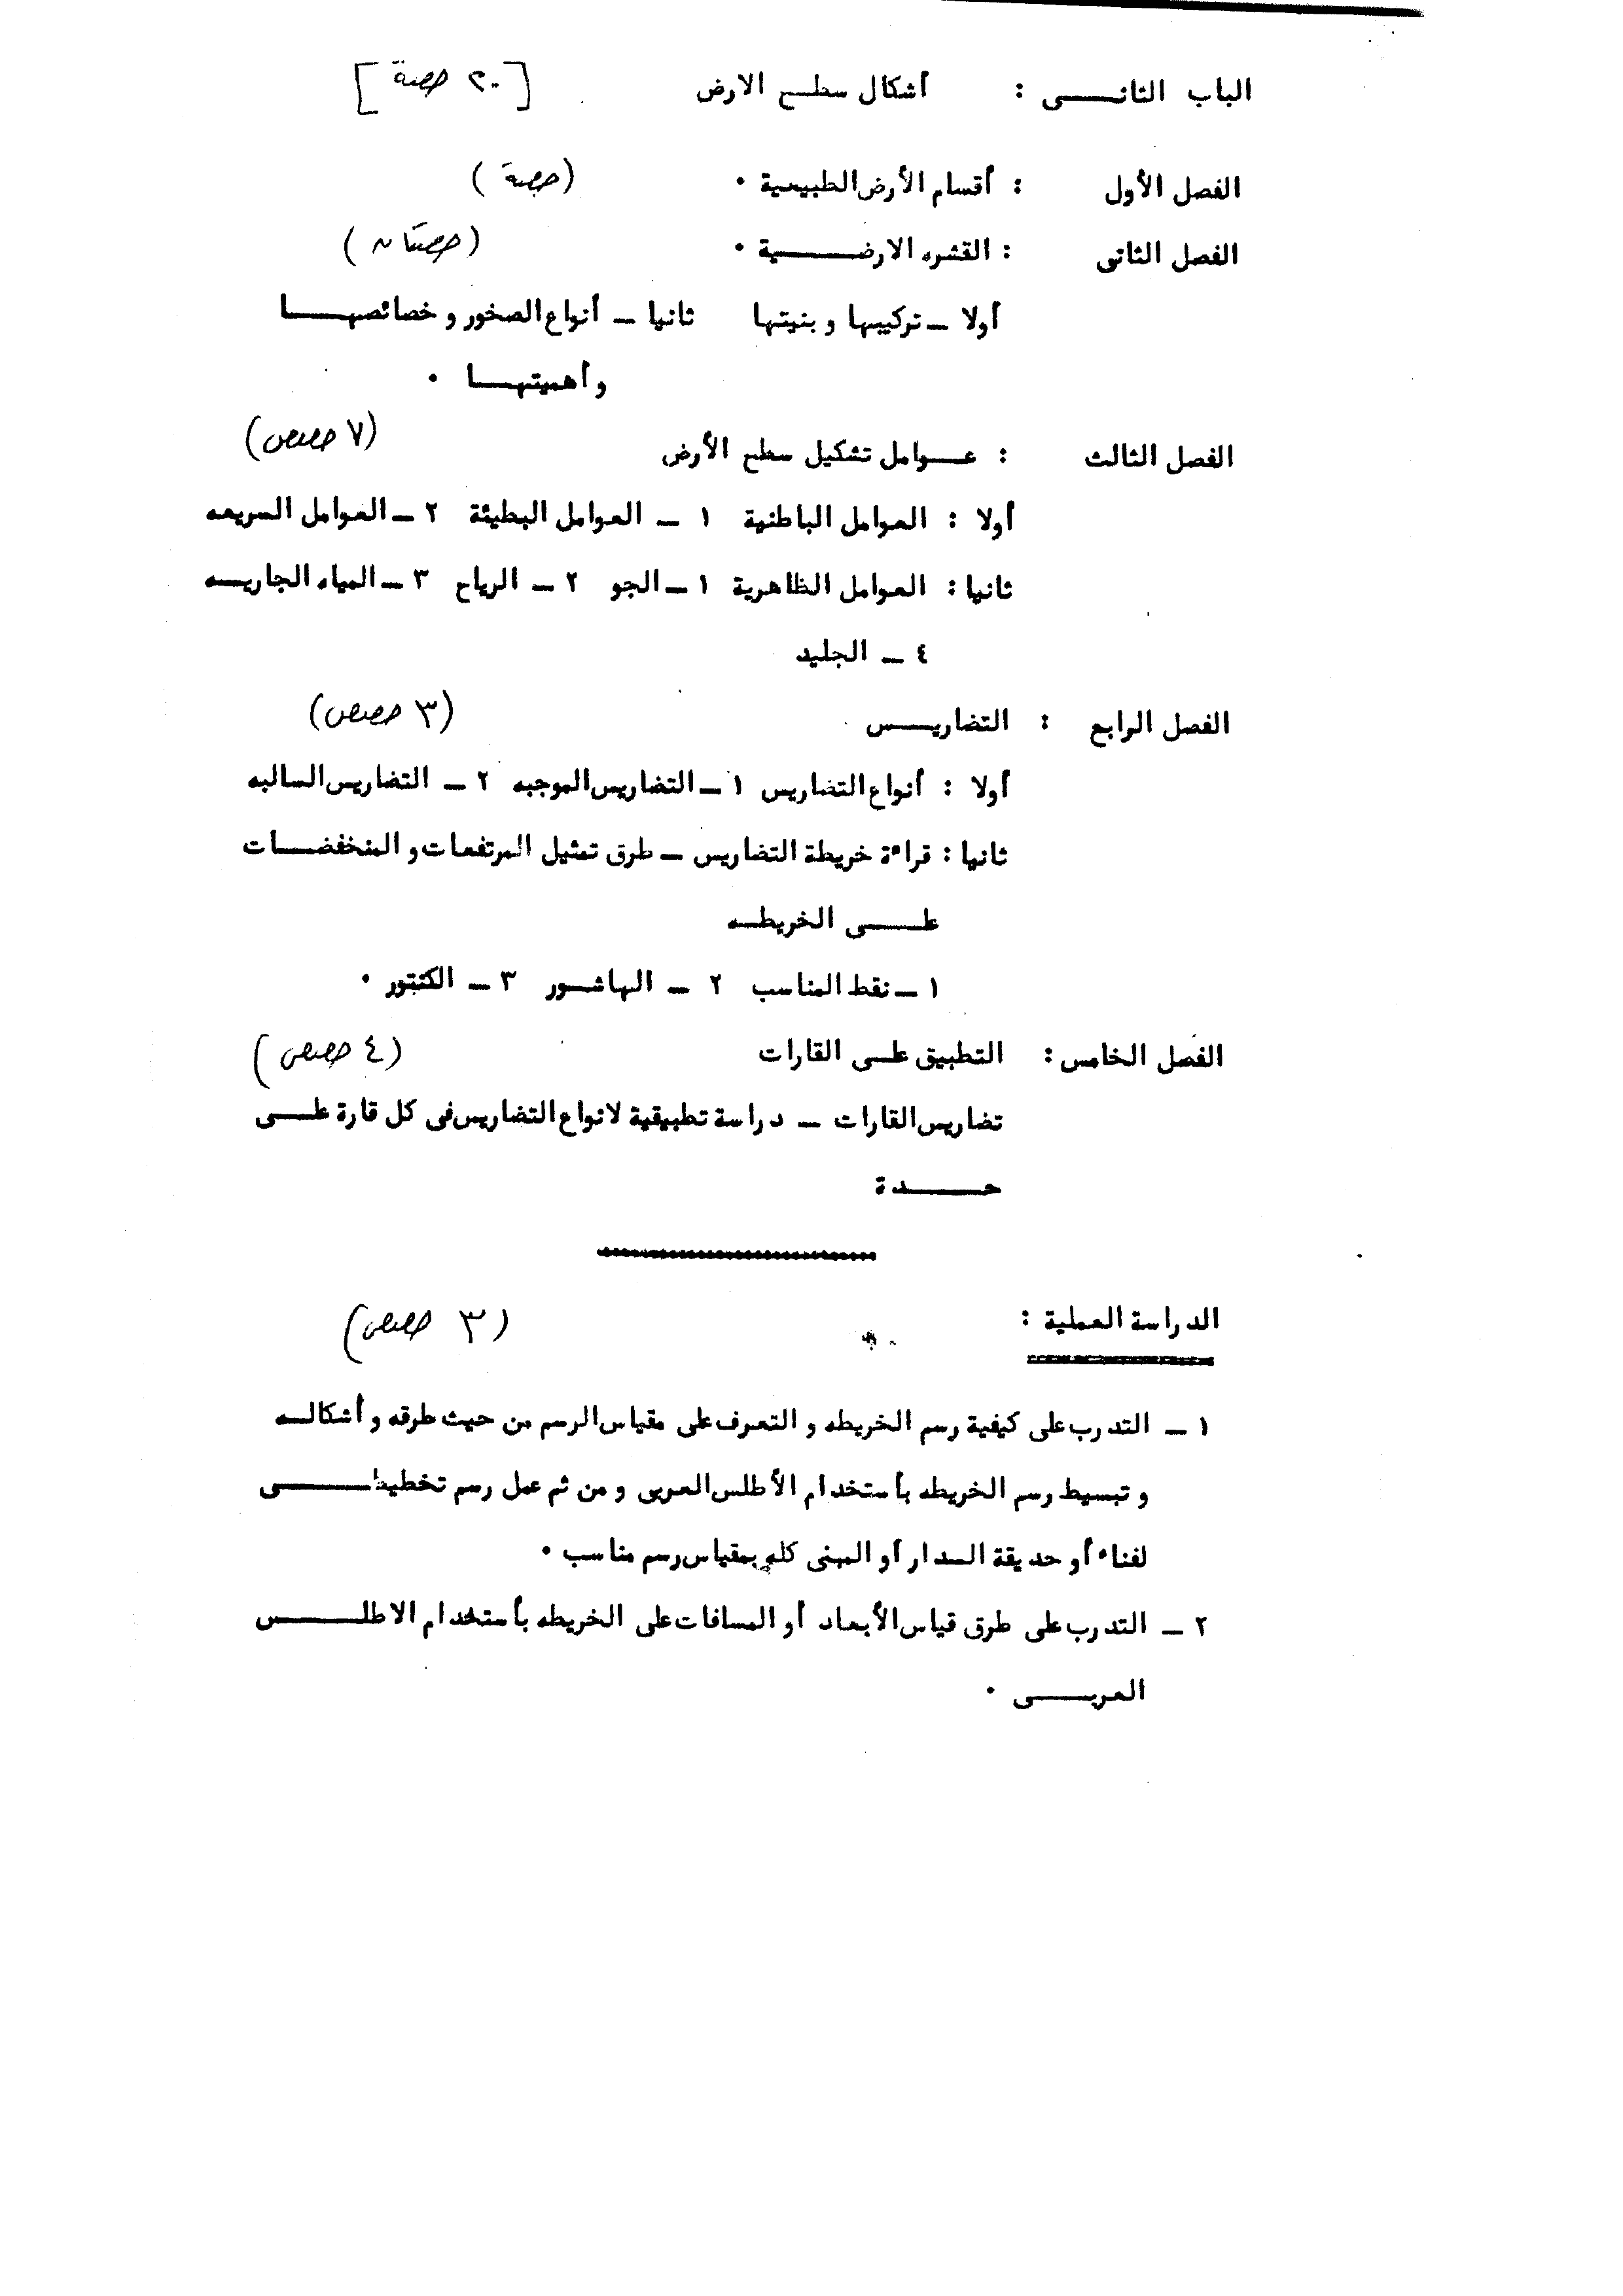 الباب الثانى : أشكال سطح الارض [٢٠ حصة]
الفصل الأول : أقسام الأرض الطبيعية ٠ (حصة)
الفصل الثانى : القشره الارضية ٠ (حصتان)
أولا ـ تركيبها وبنيتها ثانيا ـ أنواع الصخور وخصائصها
وأهميتها ٠
الفصل الثالث : عوامل تشكيل سطح الأرض (٧ حصص)
أولا : العوامل الباطنية ١ ـ العوامل البطيئة ٢ ـ العوامل السريعه
ثانيا : العوامل الظاهرية ١ ـ الجو ٢ ـ الرياح ٣ ـ المياه الجاريه
٤ ـ الجليد
الفصل الرابع : التضاريس (٣ حصص)
أولا : أنواع التضاريس ١ ـ التضاريس الموجبه ٢ ـ التضاريس السالبه
ثانيا : قراءة خريطة التضاريس ـ طرق تمثيل المرتفعات والمنخفضات
على الخريطه
١ ـ نقط المناسب ٢ ـ الهاشور ٣ ـ الكنتور ٠
الفصل الخامس : التطبيق على القارات (٤ حصص)
تضاريس القارات ـ دراسة تطبيقية لانواع التضاريس فى كل قارة على
حدة
الدراسة العملية : (٣ حصص)
١ ـ التدرب على كيفية رسم الخريطه والتعرف على مقياس الرسم من حيث طرقه وأشكاله
وتبسيط رسم الخريطه بأستخدام الأطلس العربى ومن ثم عمل رسم تخطيطى
لفناء أو حديقة الدار أو المبنى كله بمقياس رسم مناسب ٠
٢ ـ التدرب على طرق قياس الأبعاد أو المسافات على الخريطه بأستخدام الاطلس
العربى ٠